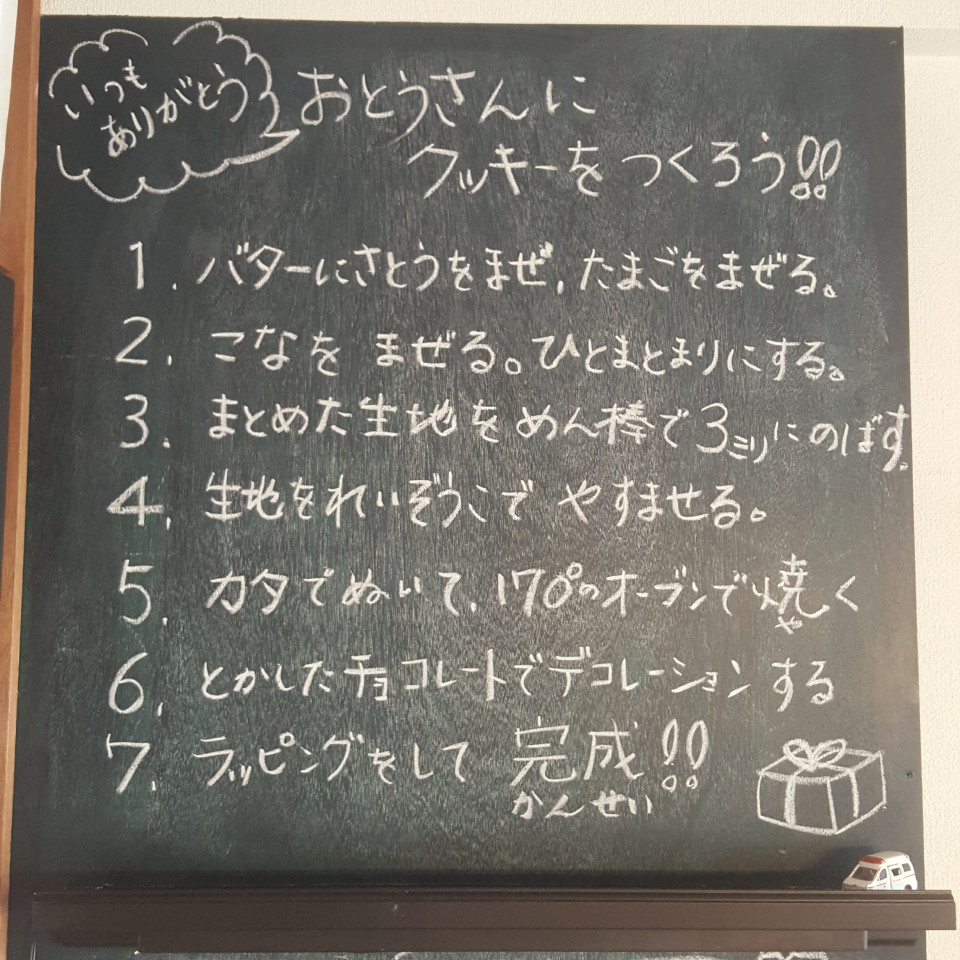 いつも
ありがとう
おとうさんに
クッキーをつくろう!!
1. バターにさとうをまぜ,たまごをまぜる。
2. こなを まぜる。ひとまとまりにする。
3. まとめた生地をめん棒で3ミリにのばす.
4. 生地をれいぞうこで やすませる。
5. カタでぬいて、170°のオーブンで焼く
や
6. とかしたチョコレートでデコレーションする
7. ラッピングをして 完成!!
かんせい